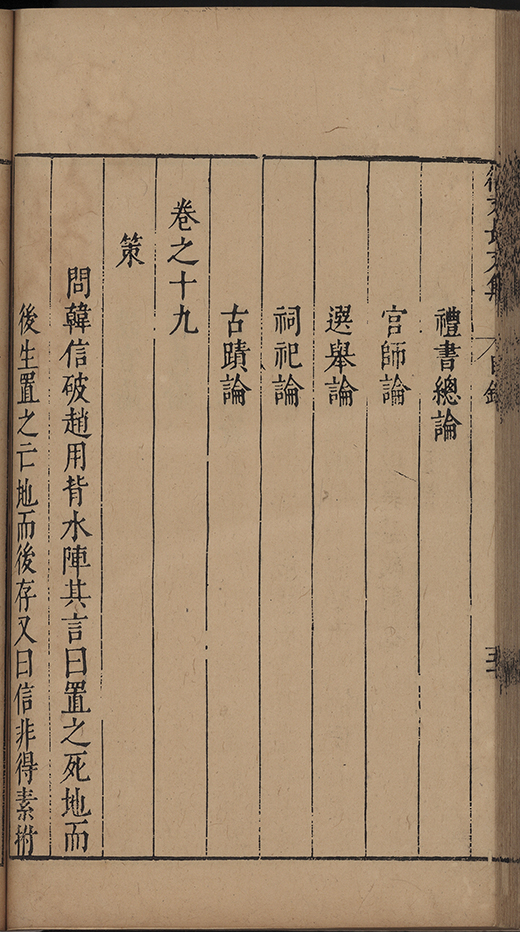 徐文長文集 目錄
禮書總論
官師論
選舉論
祠祀論
古蹟論
卷之十九
策
問韓信破趙用背水陣其言曰置之死地而
後生置之亡地而後存又曰信非得素拊